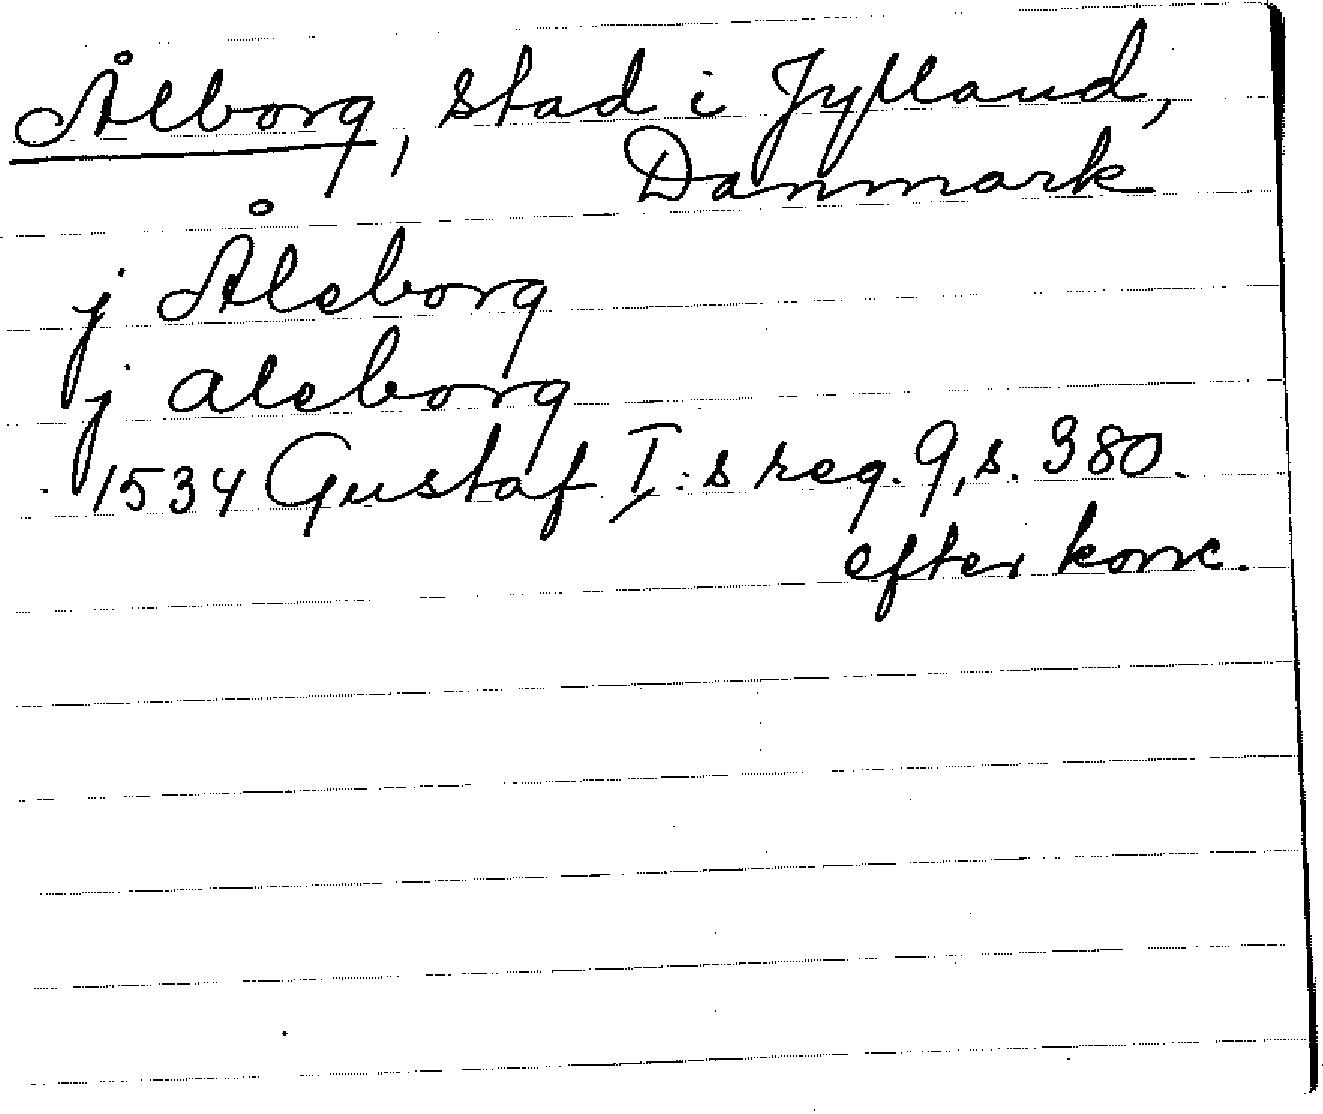 Ålborg, stad i Jylland,
Danmark
j Åleborg
j aleborg
1534 Gustaf I:s reg. 9, s. 380.
efter konc.